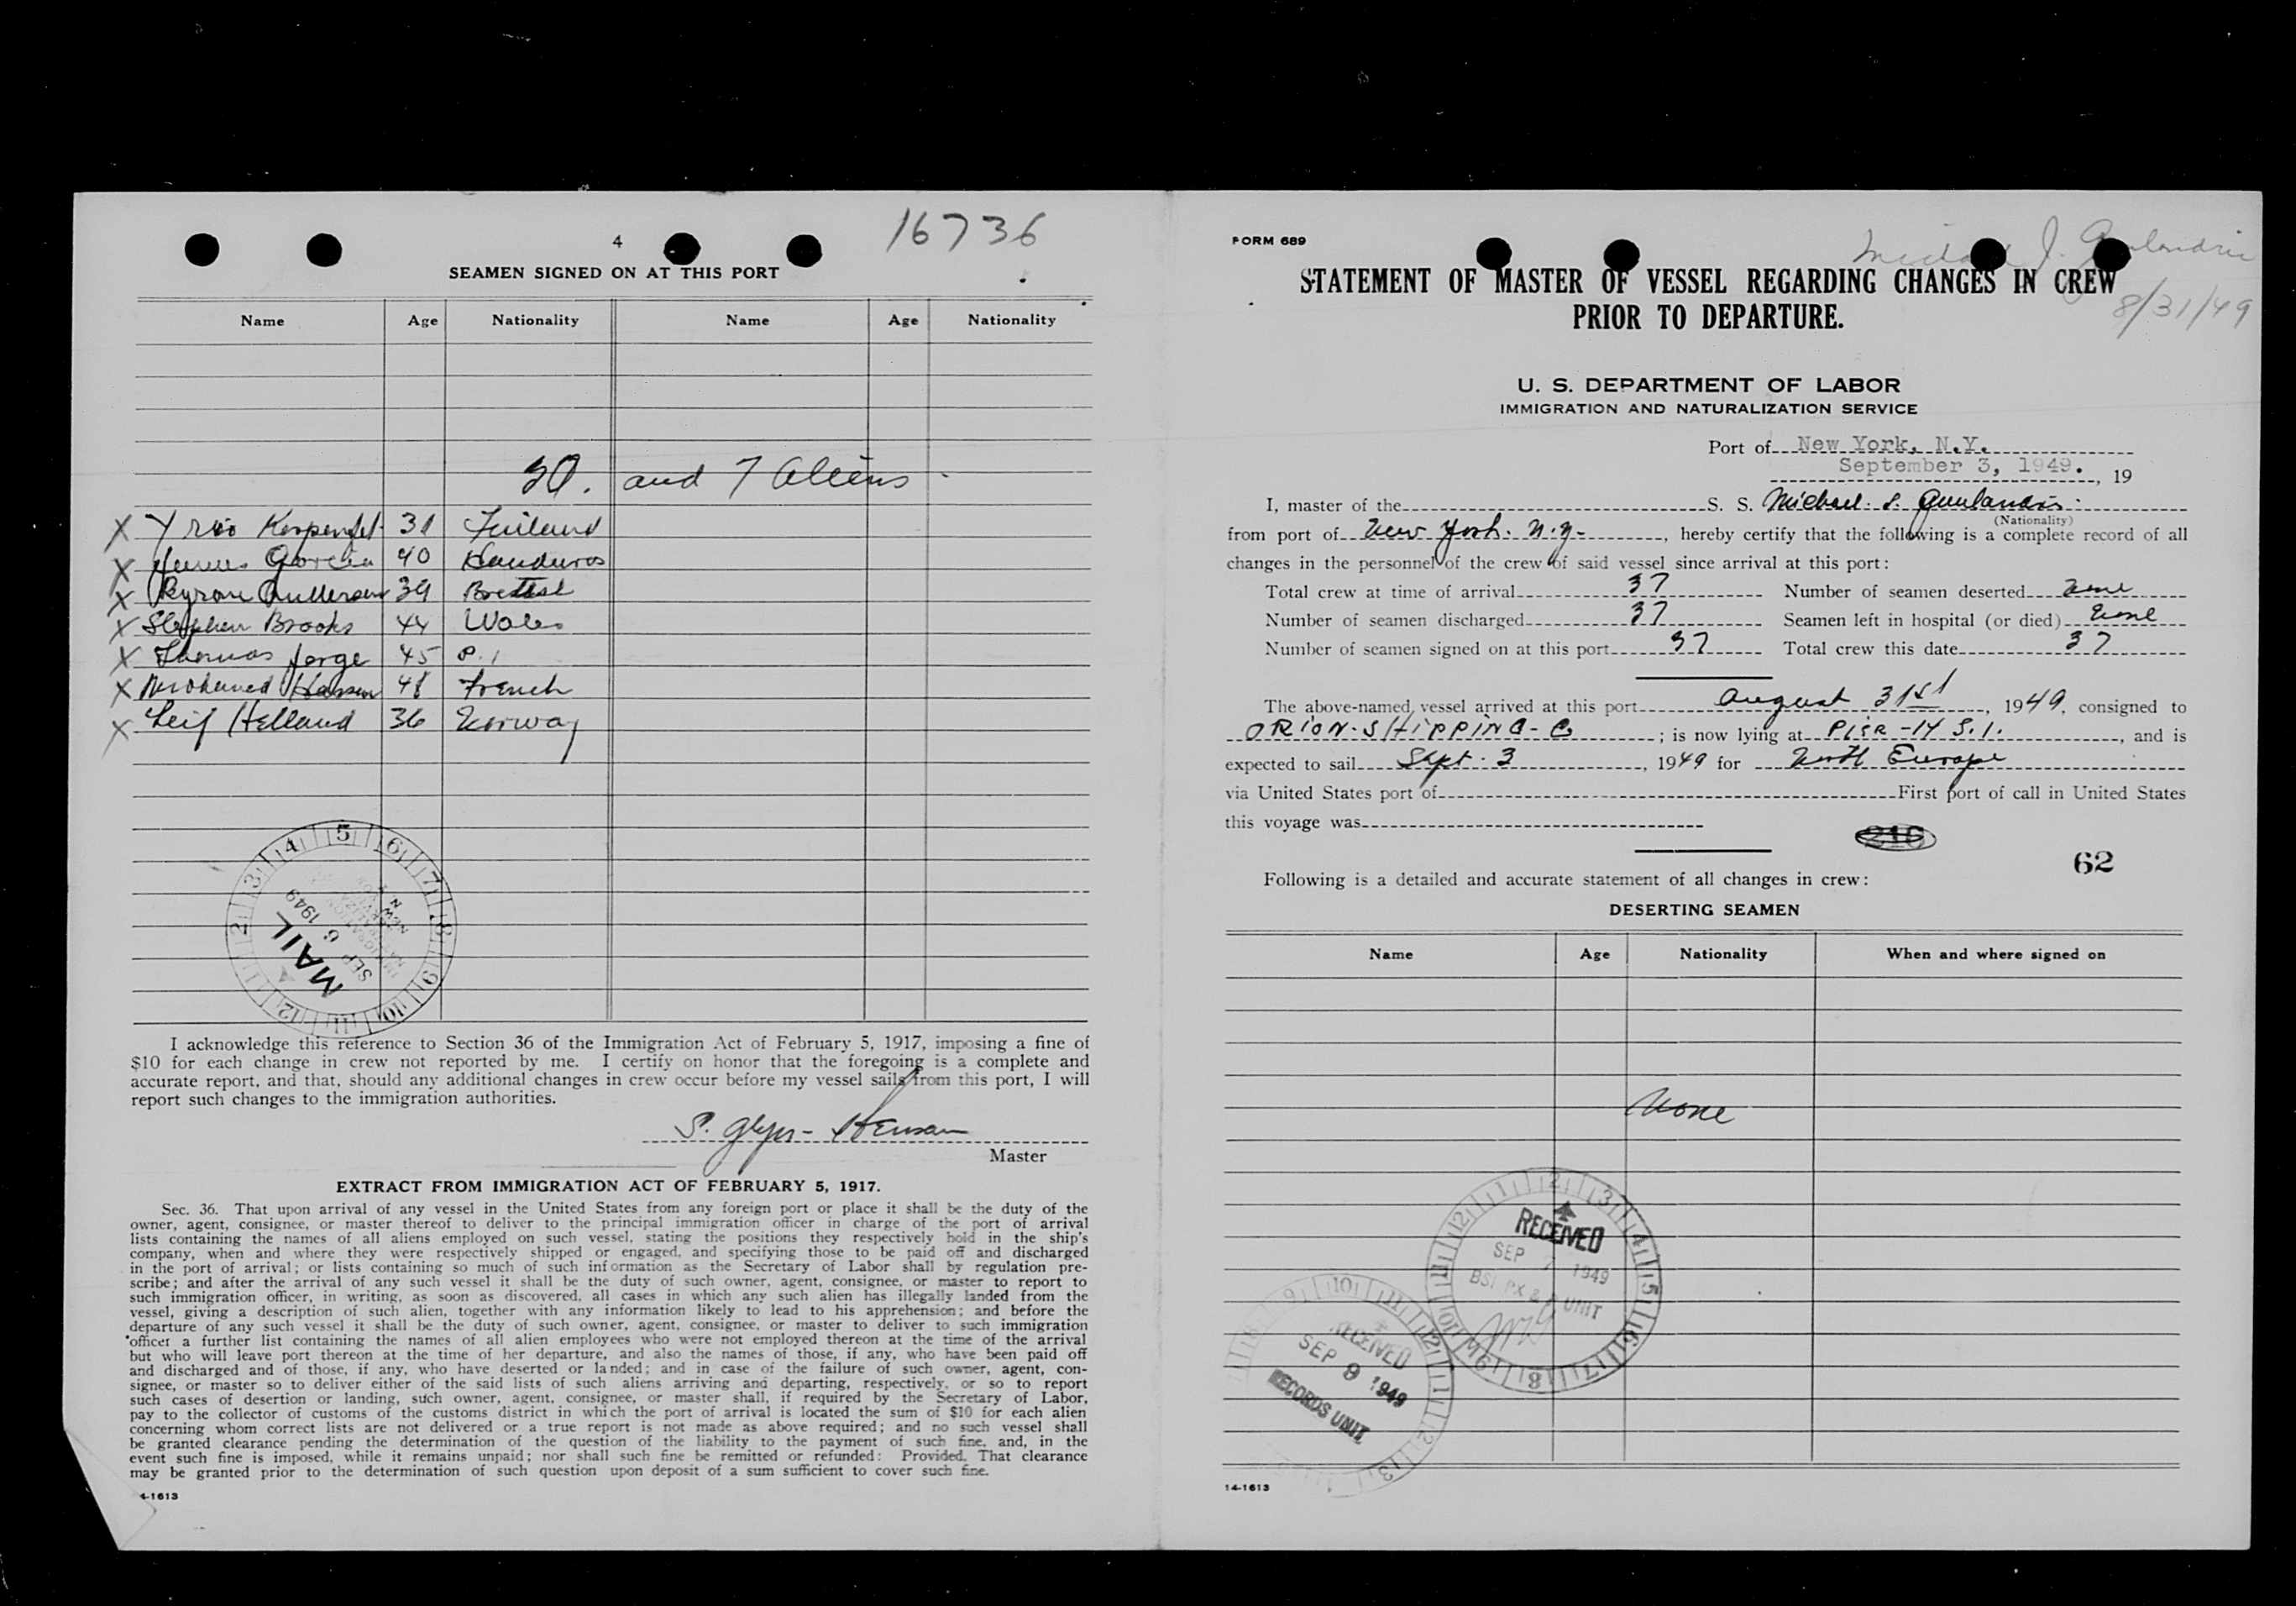 4
16736
SEAMEN SIGNED ON AT THIS PORT
Name Age Nationality Name Age Nationality
30. and 7 Aliens
X 31 Finland
X Garcia 40 Honduras
X 39
X Stephen Brooks 44 Wales
X Thomas Jorge 45 P.I
X Mohamed Hassan 48 French
X Leif Helland 36 Norway
MAIL
SEP 6 1949
I acknowledge this reference to Section 36 of the Immigration Act of February 5, 1917, imposing a fine of
$10 for each change in crew not reported by me. I certify on honor that the foregoing is a complete and
accurate report, and that, should any additional changes in crew occur before my vessel sails from this port, I will
report such changes to the immigration authorities.
Master
EXTRACT FROM IMMIGRATION ACT OF FEBRUARY 5, 1917.
Sec. 36. That upon arrival of any vessel in the United States from any foreign port or place it shall be the duty of the
owner, agent, consignee, or master thereof to deliver to the principal immigration officer in charge of the port of arrival
lists containing the names of all aliens employed on such vessel, stating the positions they respectively hold in the ship's
company, when and where they were respectively shipped or engaged, and specifying those to be paid off and discharged
in the port of arrival; or lists containing so much of such information as the Secretary of Labor shall by regulation pre-
scribe; and after the arrival of any such vessel it shall be the duty of such owner, agent, consignee, or master to report to
such immigration officer, in writing, as soon as discovered, all cases in which any such alien has illegally landed from the
vessel, giving a description of such alien, together with any information likely to lead to his apprehension; and before the
departure of any such vessel it shall be the duty of such owner, agent, consignee, or master to deliver to such immigration
officer a further list containing the names of all alien employees who were not employed thereon at the time of the arrival
but who will leave port thereon at the time of her departure, and also the names of those, if any, who have been paid off
and discharged and of those, if any, who have deserted or landed; and in case of the failure of such owner, agent, con-
signee, or master so to deliver either of the said lists of such aliens arriving and departing, respectively, or so to report
such cases of desertion or landing, such owner, agent, consignee, or master shall, if required by the Secretary of Labor,
pay to the collector of customs of the customs district in which the port of arrival is located the sum of $10 for each alien
concerning whom correct lists are not delivered or a true report is not made as above required; and no such vessel shall
be granted clearance pending the determination of the question of the liability to the payment of such fine, and, in the
event such fine is imposed, while it remains unpaid; nor shall such fine be remitted or refunded: Provided, That clearance
may be granted prior to the determination of such question upon deposit of a sum sufficient to cover such fine.
4-1613
FORM 689
8/31/49
STATEMENT OF MASTER OF VESSEL REGARDING CHANGES IN CREW
PRIOR TO DEPARTURE.
U. S. DEPARTMENT OF LABOR
IMMIGRATION AND NATURALIZATION SERVICE
Port of New York, N.Y.
September 3, 1949. , 19
I, master of the S. S. Michael
(Nationality)
from port of New York. N.Y. , hereby certify that the following is a complete record of all
changes in the personnel of the crew of said vessel since arrival at this port:
Total crew at time of arrival 37 Number of seamen deserted None
Number of seamen discharged 37 Seamen left in hospital (or died) None
Number of seamen signed on at this port 37 Total crew this date 37
The above-named vessel arrived at this port August 31st , 1949, consigned to
ORION-SHIPPING-Co ; is now lying at PIER-14 S.I. , and is
expected to sail Sept. 3 , 1949 for North Europe
via United States port of First port of call in United States
this voyage was
216
62
Following is a detailed and accurate statement of all changes in crew:
DESERTING SEAMEN
Name Age Nationality When and where signed on
None
RECEIVED
SEP 7 1949
UNIT
RECEIVED
SEP 9 1949
RECORDS UNIT
14-1613